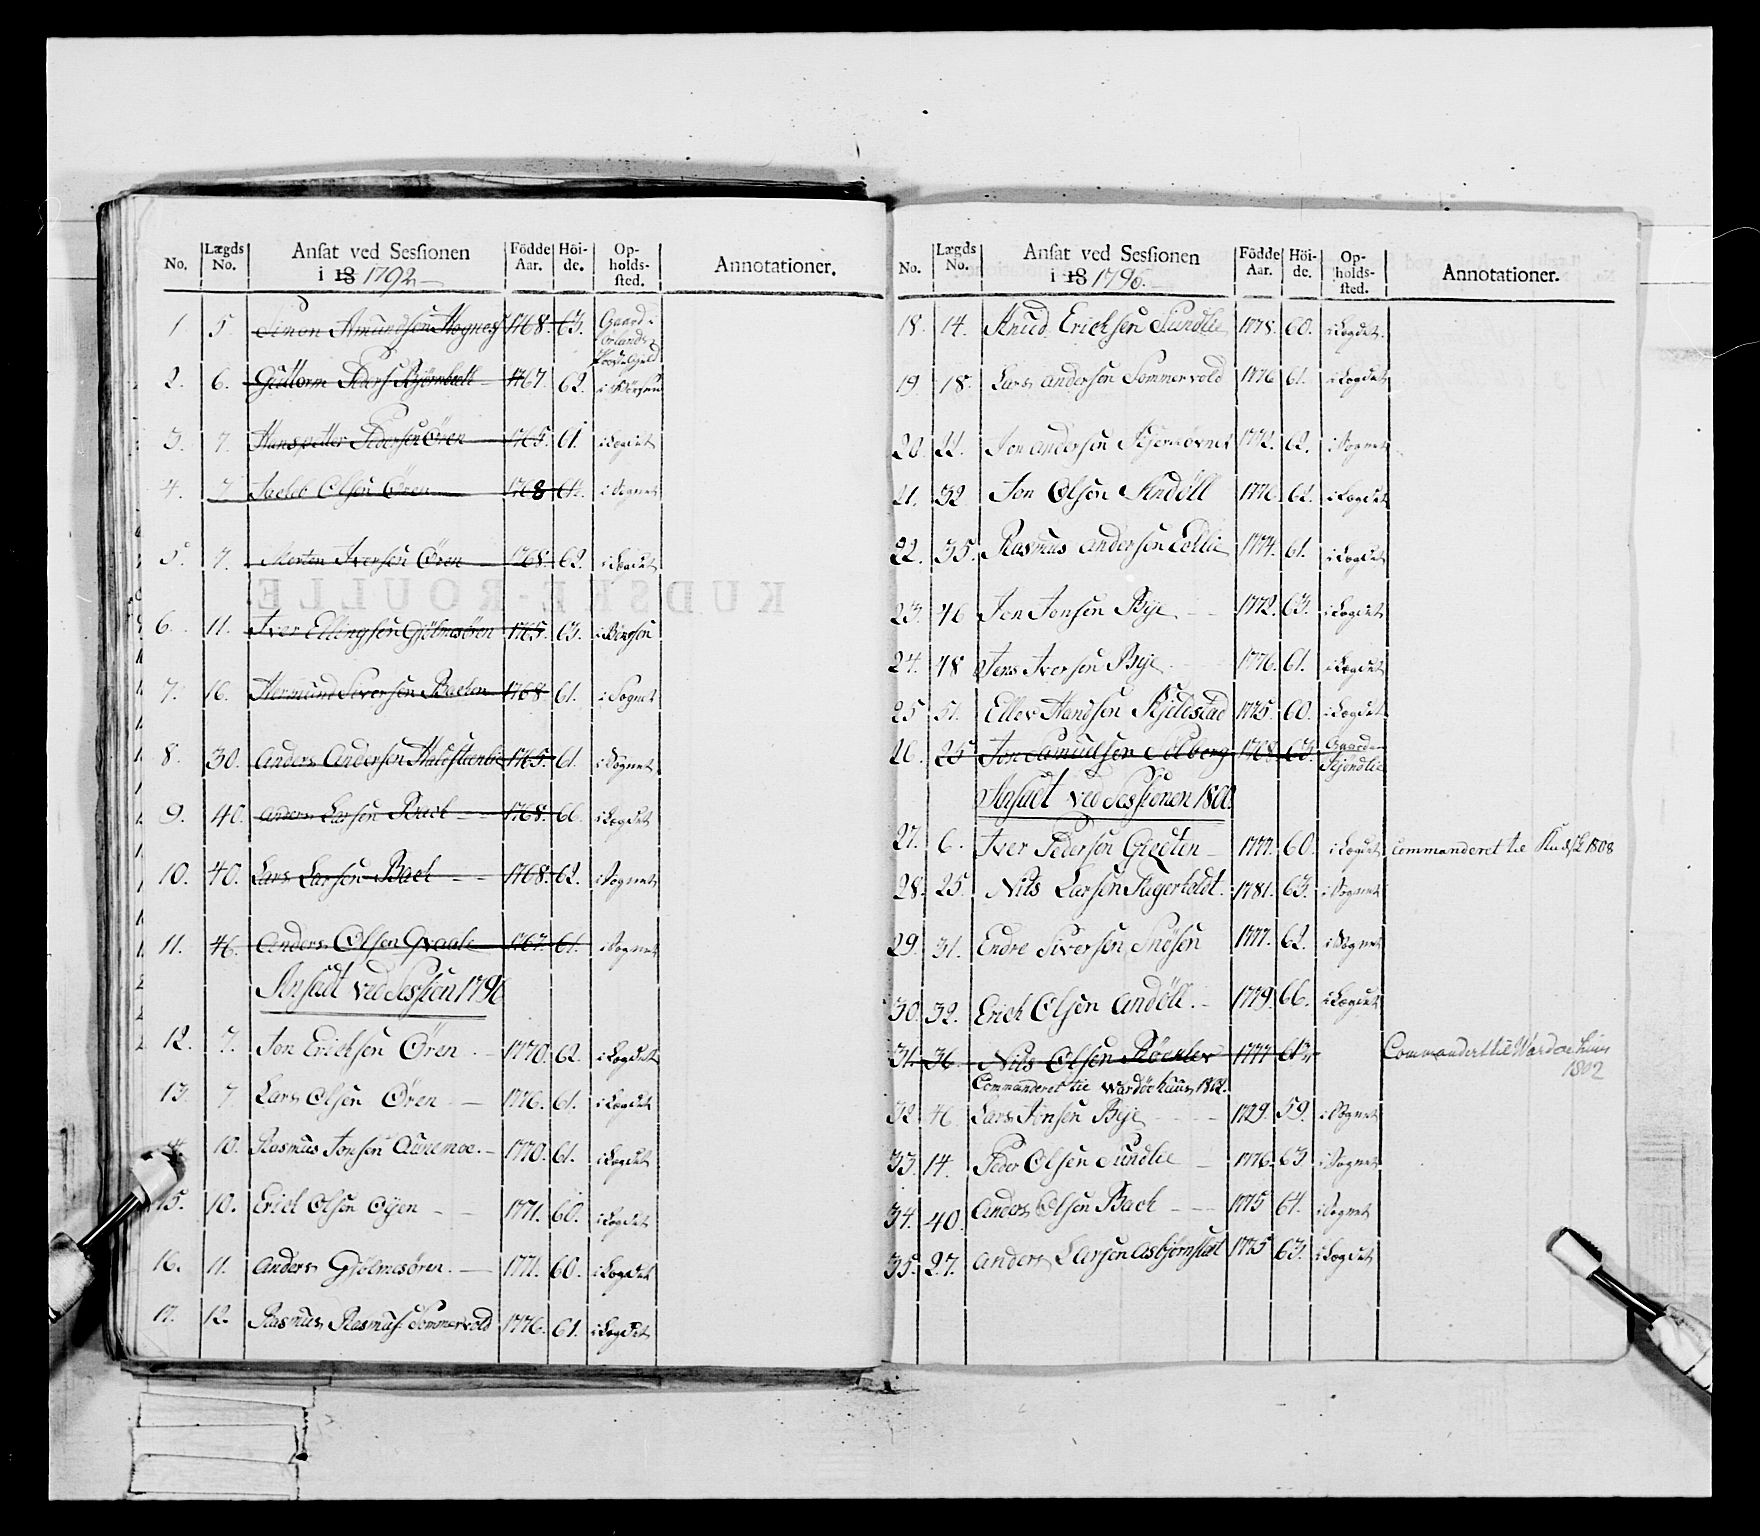 No. Lægds No. Ansat ved Sessionen i 18 1792 Födde Aar. Höi-de. Op-holds-sted. Annotationer.
1 5. Simon Amundsen Hognes 1768. 63. Gaard i Ørlands Præstegield
2. 6. Guttorm Peders. Biörnbett 1767. 62. i Börsen
3. 7. Hanspetter Pedersen Ören 1765. 61. i Lægdet
4. 7. Jacob Olsen Ören 1768 64. i Sognet
5. 7. Morten Iversen Ören 1768. 62. i Lægdet
6. 11. Iver Ellingsen Giölmesören 1765. 63. i Börsen
7. 16. Hermund Siversen 1768 61. i Sognet
8. 30. Anders Andersen 1765. 61. i Sognet
9. 40. Anders Larsen Bach 1768. 66. i Lægdet
10. 40. Lars Larsen Bach 1768. 62. i Sognet
11. 46. Anders Olsen Gvaale 1767. 61. i Sognet
Ansadt ved Session 1796
12. 7. Jon Erichsen Ören 1770. 62. i Lægdet
13. 7 Lars Olsen Ören 1776. 61. i Lægdet
10. Rasmus Jonsen Aunemoe. 1770. 61. i Lægdet
15. 10. Erich Olsen Oÿen 1771. 60. i Lægdet
16. 11. Anders Giölmesören. 1771. 60. i Lægdet
17. 12. Rasmus Rasmus. Sommervold 1776. 61. i Lægdet
KUDSKE-ROULLE.
No. Lægds No. Ansat ved Sessionen i 18 1796. Födde Aar. Höi-de. Op-holds-sted. Annotationer.
18. 14. Knud Erichsen Sundlie 1778. 60. i Lægdet.
19 18. Lars Andersen Sommervold 1776 61. i Lægdet
20. 22. Jon Andersen 1772. 62. i Sognet
21. 32. Jon Olsen Andöll 1776. 62. i Lægdet
22. 35. Rasmus Andersen Lillie 1774. 61. i Lægdet
23. 46 Jon Jonsen Bÿe 1772. 63. i Lægdet
24. 48 Jens Iversen Bÿe 1776. 61. i Lægdet
25 51. Ellev Handsen Kieldstad 1775. 60. i Lægdet
26. 25 Jon Samuelsen Solberg 1768. 63. Gaarden
Ansadt ved Sessionen 1800.
27. 6. Iver Pedersen Gleeten 1777. 60. i Lægdet Commanderet til Kudsk 1808
28. 25. Nils Larsen Fagerholdt. 1781. 63. i Sognet
29. 31. Endre Siversen Snösen 1777. 62. i Sognet
30. 32. Erich Olsen Andöll. 1779. 66. i Lægdet
31. 36. Nils Olsen 1777 Commandert til Wardoehuus 1802
Commanderet til Wardöehuus 1802.
32 46 Lars Jonsen Bÿe 1779. 59. i Sognet
33. 14. Peder Olsen Sundlie 1776. 63 i Sognet
34. 40. Anders Olsen Bach 1775 64. i Sognet
35. 27. Anders Larsen Asbjörnslæt 1775 63. i Lægdet